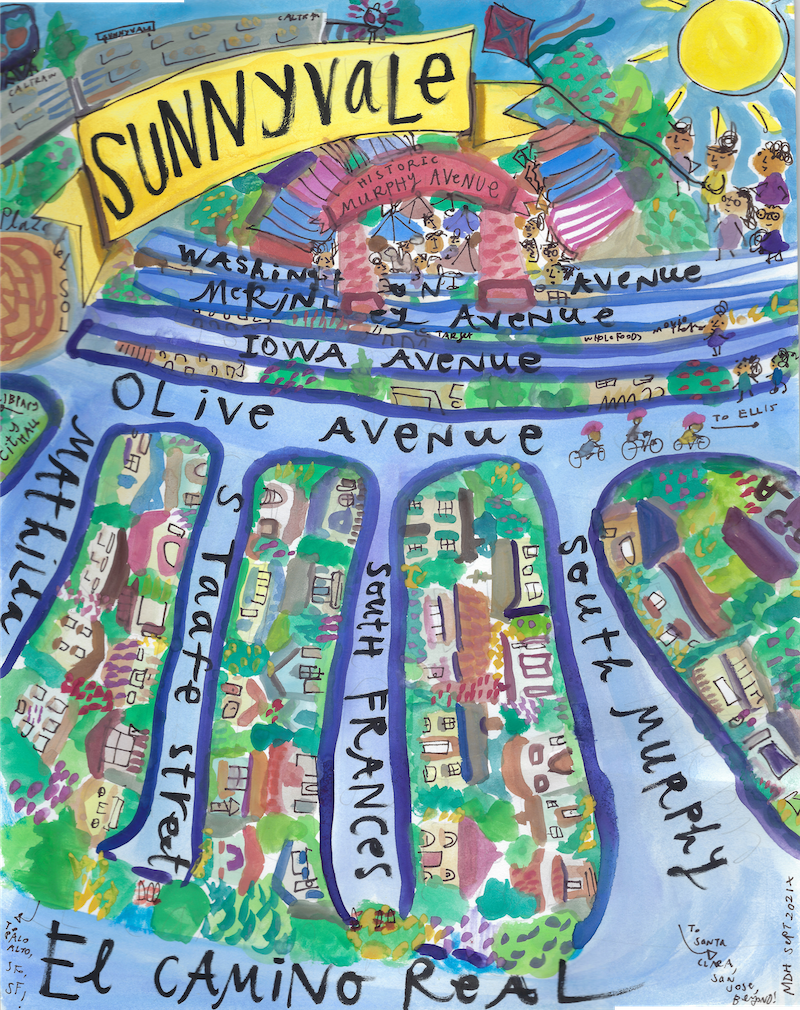 CALTRAIN
SUNNYVALE
CALTRAIN
SUNNYVALE
HISTORIC
MURPHY AVENUE
Plaza del SOL
WASHINGTON AVENUE
McKINLEY AVENUE
TARGET
WHOLE FOODS
IOWA AVENUE
OLive AVENUE
TO ELLIS
LIBRARY
CITY HALL
MAthilda
S TaaFe street
South FRANCES
South MURPhy
El CAMINO ReAL
To
PALO
ALTO,
SF,
SF!
To
SANTA
CLARA,
SAN
JOSE,
BEYOND!
MDH SEPT 2021